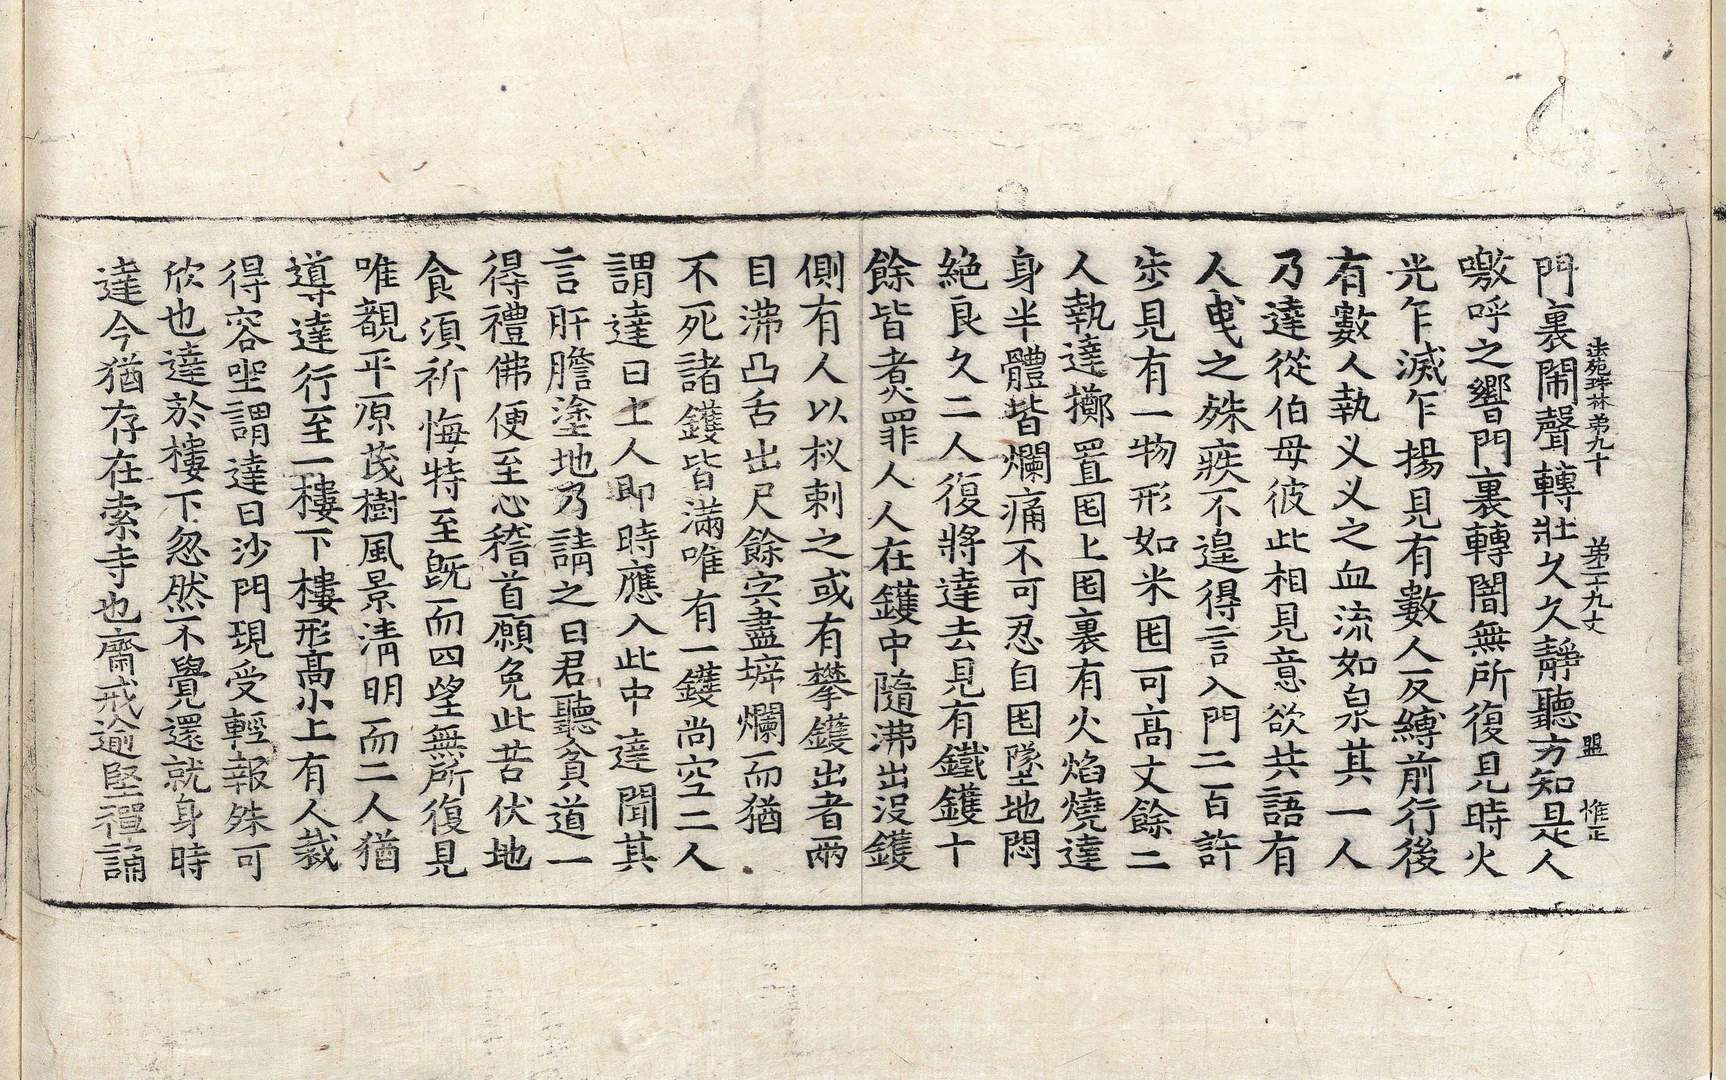 法苑珠林第九十 第二十九丈 盟 惟正
門裏閙聲轉壯久久靜聽方知是人
噭呼之響門裏轉闇無所復見時火
光乍滅乍揚見有數人反縛前行後
有數人執义义之血流如泉其一人
乃達從伯母彼此相見意欲共語有
人曳之殊疾不遑得言入門二百許
步見有一物形如米囤可高丈餘二
人執達擲置囤上囤裏有火焰燒達
身半體皆爛痛不可忍自囤墜地悶
絶良久二人復將達去見有鐵鑊十
餘皆煑罪人人在鑊中隨沸出沒鑊
側有人以杈刺之或有攀鑊出者兩
目沸凸舌出尺餘宍盡㙛爛而猶
不死諸鑊皆滿唯有一鑊尚空二人
謂達曰上人即時應入此中達聞其
言肝膽塗地乃請之曰君聽貧道一
得禮佛便至心稽首願免此苦伏地
食須祈悔特至旣而四望無所復見
唯覩平原茂樹風景淸明而二人猶
導達行至一樓下樓形高小上有人裁
得容坐謂達曰沙門現受輕報殊可
欣也達於樓下忽然不覺還就身時
達今猶存在索寺也齋戒逾堅禪誦